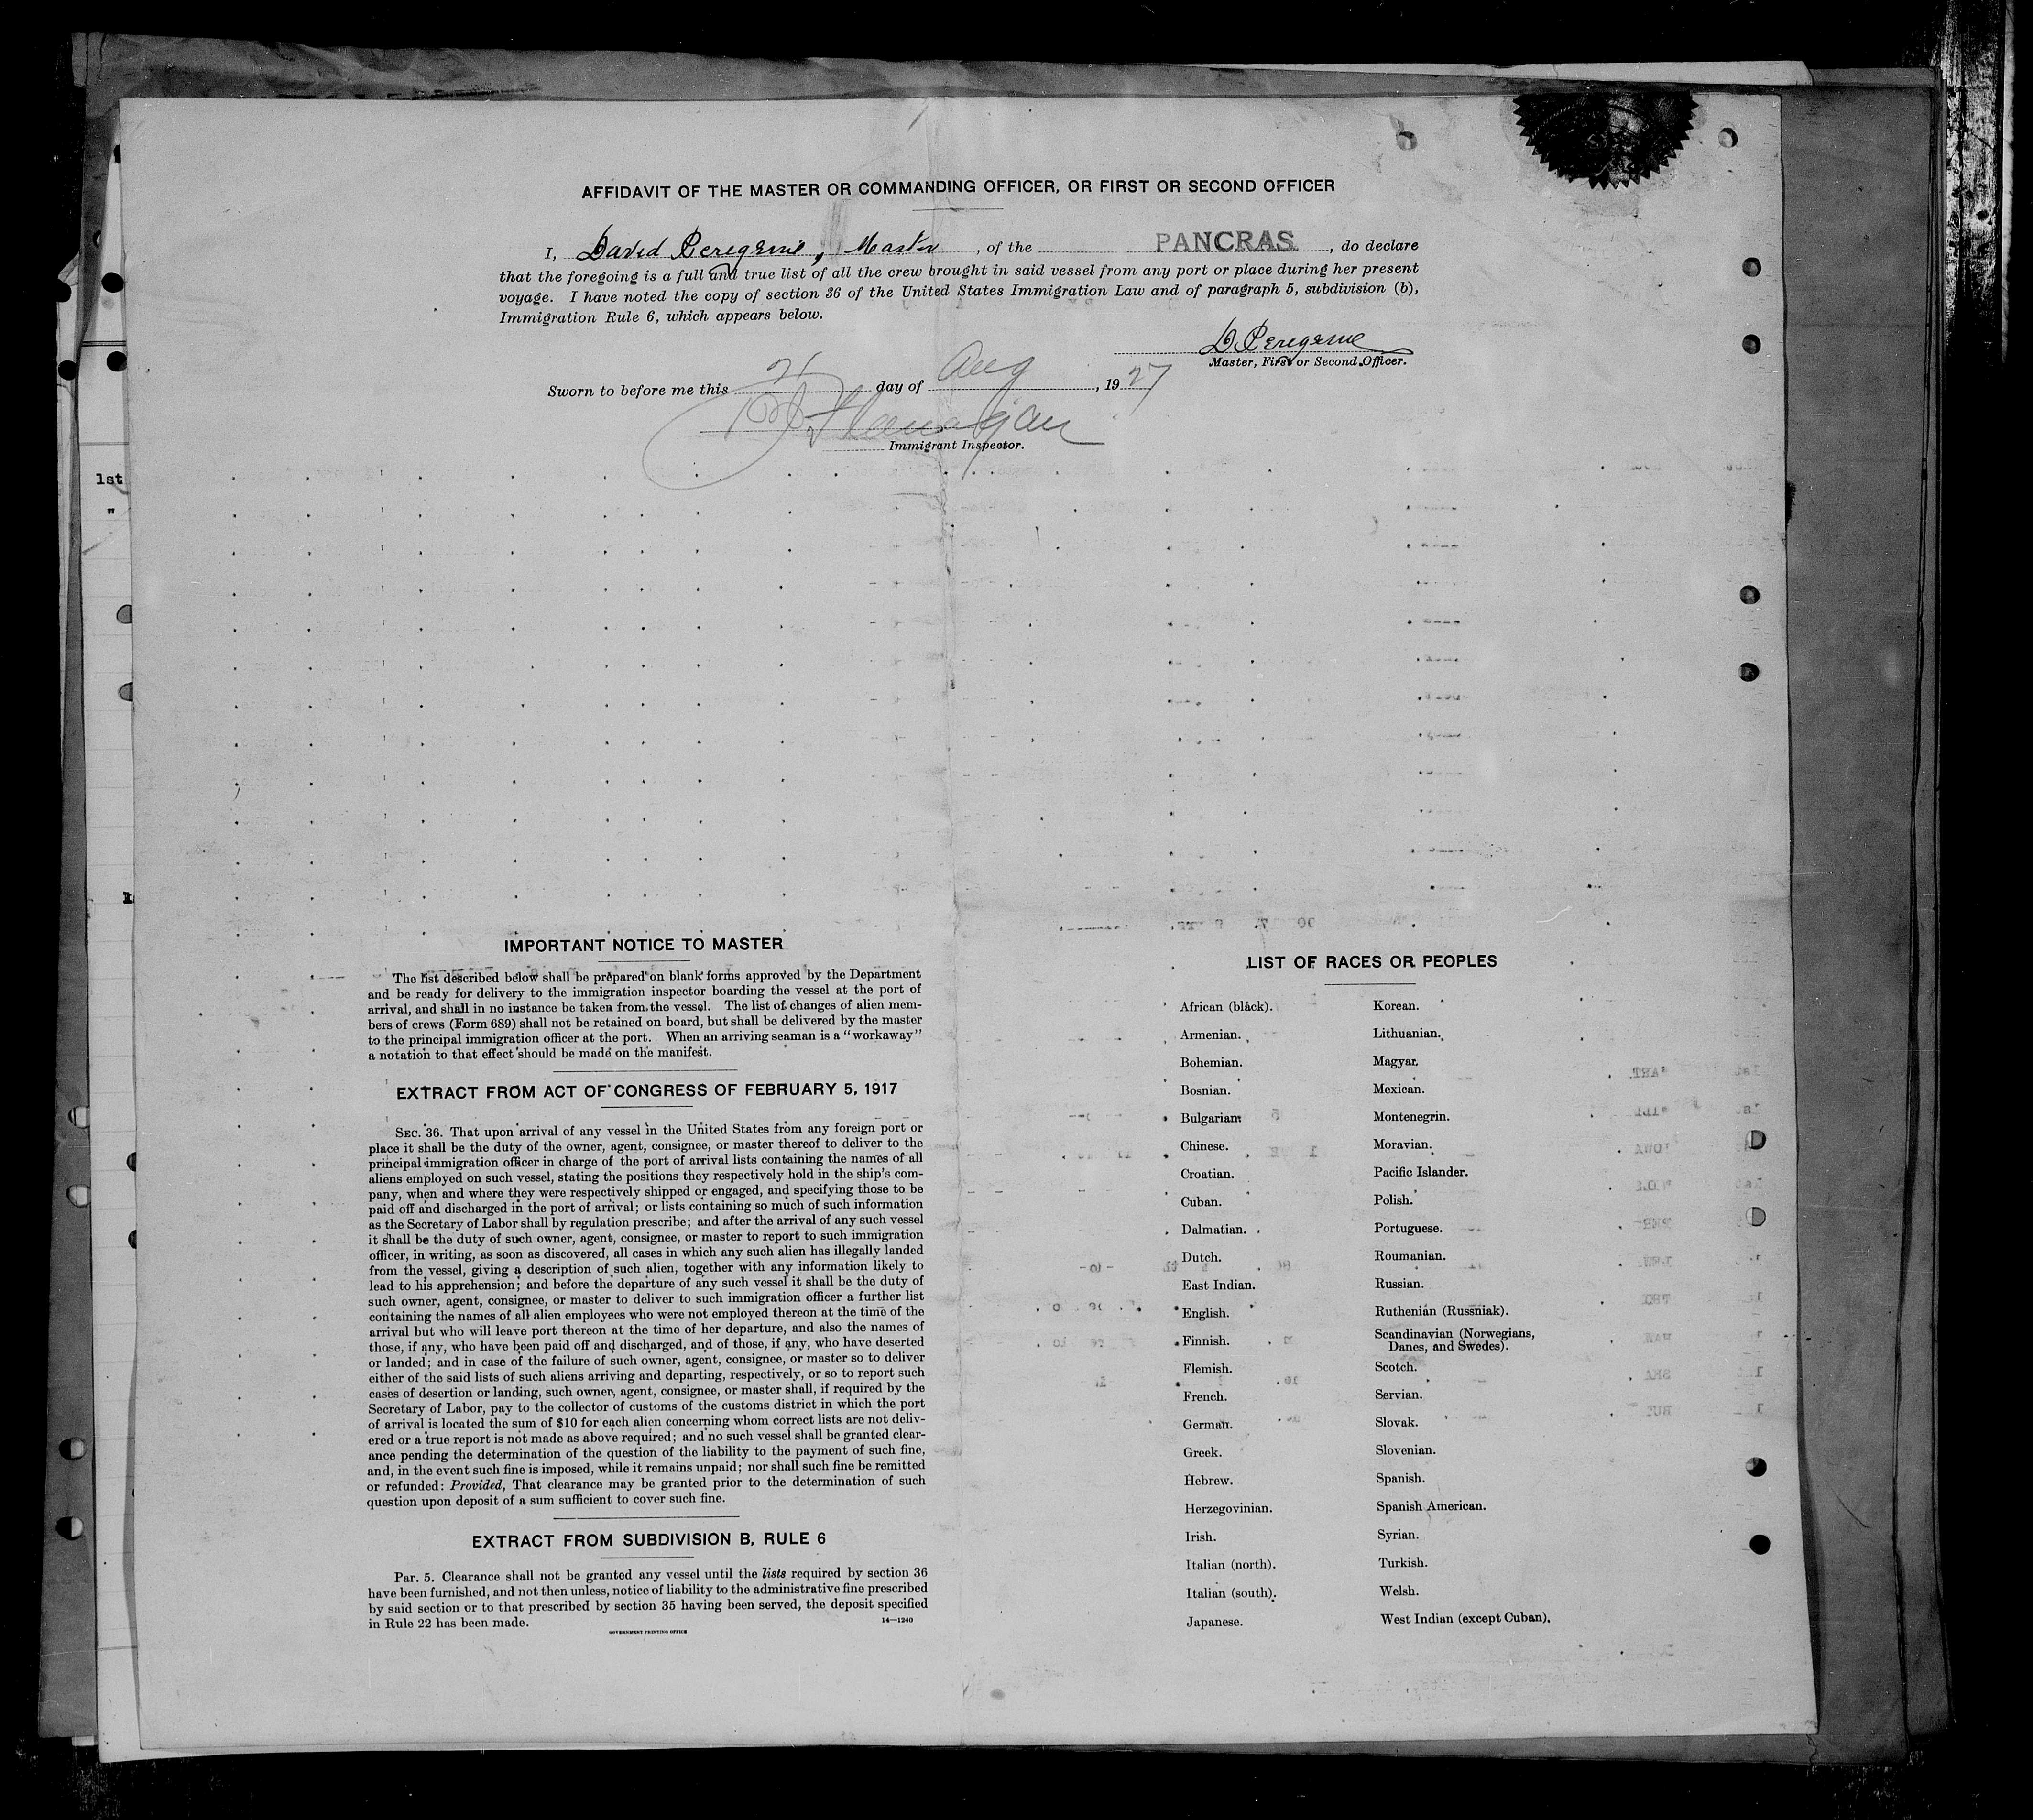 AFFIDAVIT OF THE MASTER OR COMMANDING OFFICER, OR FIRST OR SECOND OFFICER
I, David Peregrine, Master, of the PANCRAS, do declare
that the foregoing is a full and true list of all the crew brought in said vessel from any port or place during her present
voyage. I have noted the copy of section 36 of the United States Immigration Law and of paragraph 5, subdivision (b),
Immigration Rule 6, which appears below.
D Peregrine
Master, First or Second Officer.
Sworn to before me this day of Aug, 1927
Flanagan
Immigrant Inspector.
1st
"
IMPORTANT NOTICE TO MASTER
The list described below shall be prepared on blank forms approved by the Department
and be ready for delivery to the immigration inspector boarding the vessel at the port of
arrival, and shall in no instance be taken from the vessel. The list of changes of alien mem-
bers of crews (Form 689) shall not be retained on board, but shall be delivered by the master
to the principal immigration officer at the port. When an arriving seaman is a "workaway"
a notation to that effect should be made on the manifest.
EXTRACT FROM ACT OF CONGRESS OF FEBRUARY 5, 1917
SEC. 36. That upon arrival of any vessel in the United States from any foreign port or
place it shall be the duty of the owner, agent, consignee, or master thereof to deliver to the
principal immigration officer in charge of the port of arrival lists containing the names of all
aliens employed on such vessel, stating the positions they respectively hold in the ship's com-
pany, when and where they were respectively shipped or engaged, and specifying those to be
paid off and discharged in the port of arrival; or lists containing so much of such information
as the Secretary of Labor shall by regulation prescribe; and after the arrival of any such vessel
it shall be the duty of such owner, agent, consignee, or master to report to such immigration
officer, in writing, as soon as discovered, all cases in which any such alien has illegally landed
from the vessel, giving a description of such alien, together with any information likely to
lead to his apprehension; and before the departure of any such vessel it shall be the duty of
such owner, agent, consignee, or master to deliver to such immigration officer a further list
containing the names of all alien employees who were not employed thereon at the time of the
arrival but who will leave port thereon at the time of her departure, and also the names of
those, if any, who have been paid off and discharged, and of those, if any, who have deserted
or landed; and in case of the failure of such owner, agent, consignee, or master so to deliver
either of the said lists of such aliens arriving and departing, respectively, or so to report such
cases of desertion or landing, such owner, agent, consignee, or master shall, if required by the
Secretary of Labor, pay to the collector of customs of the customs district in which the port
of arrival is located the sum of $10 for each alien concerning whom correct lists are not deliv-
ered or a true report is not made as above required; and no such vessel shall be granted clear-
ance pending the determination of the question of the liability to the payment of such fine,
and, in the event such fine is imposed, while it remains unpaid; nor shall such fine be remitted
or refunded: Provided, That clearance may be granted prior to the determination of such
question upon deposit of a sum sufficient to cover such fine.
EXTRACT FROM SUBDIVISION B, RULE 6
Par. 5. Clearance shall not be granted any vessel until the lists required by section 36
have been furnished, and not then unless, notice of liability to the administrative fine prescribed
by said section or to that prescribed by section 35 having been served, the deposit specified
in Rule 22 has been made.
14—1240
GOVERNMENT PRINTING OFFICE
LIST OF RACES OR PEOPLES
African (black).
Armenian.
Bohemian.
Bosnian.
Bulgarian.
Chinese.
Croatian.
Cuban.
Dalmatian.
Dutch.
East Indian.
English.
Finnish.
Flemish.
French.
German.
Greek.
Hebrew.
Herzegovinian.
Irish.
Italian (north).
Italian (south).
Japanese.
Korean.
Lithuanian.
Magyar.
Mexican.
Montenegrin.
Moravian.
Pacific Islander.
Polish.
Portuguese.
Roumanian.
Russian.
Ruthenian (Russniak).
Scandinavian (Norwegians,
Danes, and Swedes).
Scotch.
Servian.
Slovak.
Slovenian.
Spanish.
Spanish American.
Syrian.
Turkish.
Welsh.
West Indian (except Cuban).